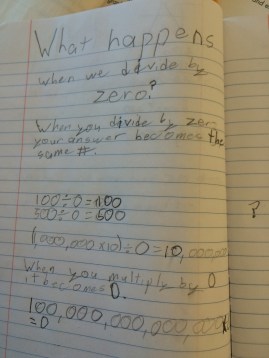 What happens
when we divide by
zero?
When you divide by zero
your answer becomes the
same #.
100÷0=100
500÷0=500
(1,000,000x10)÷0=10,000,000
When you multiply by 0
it becomes 0.
100,000,000,000,000x
=0
?